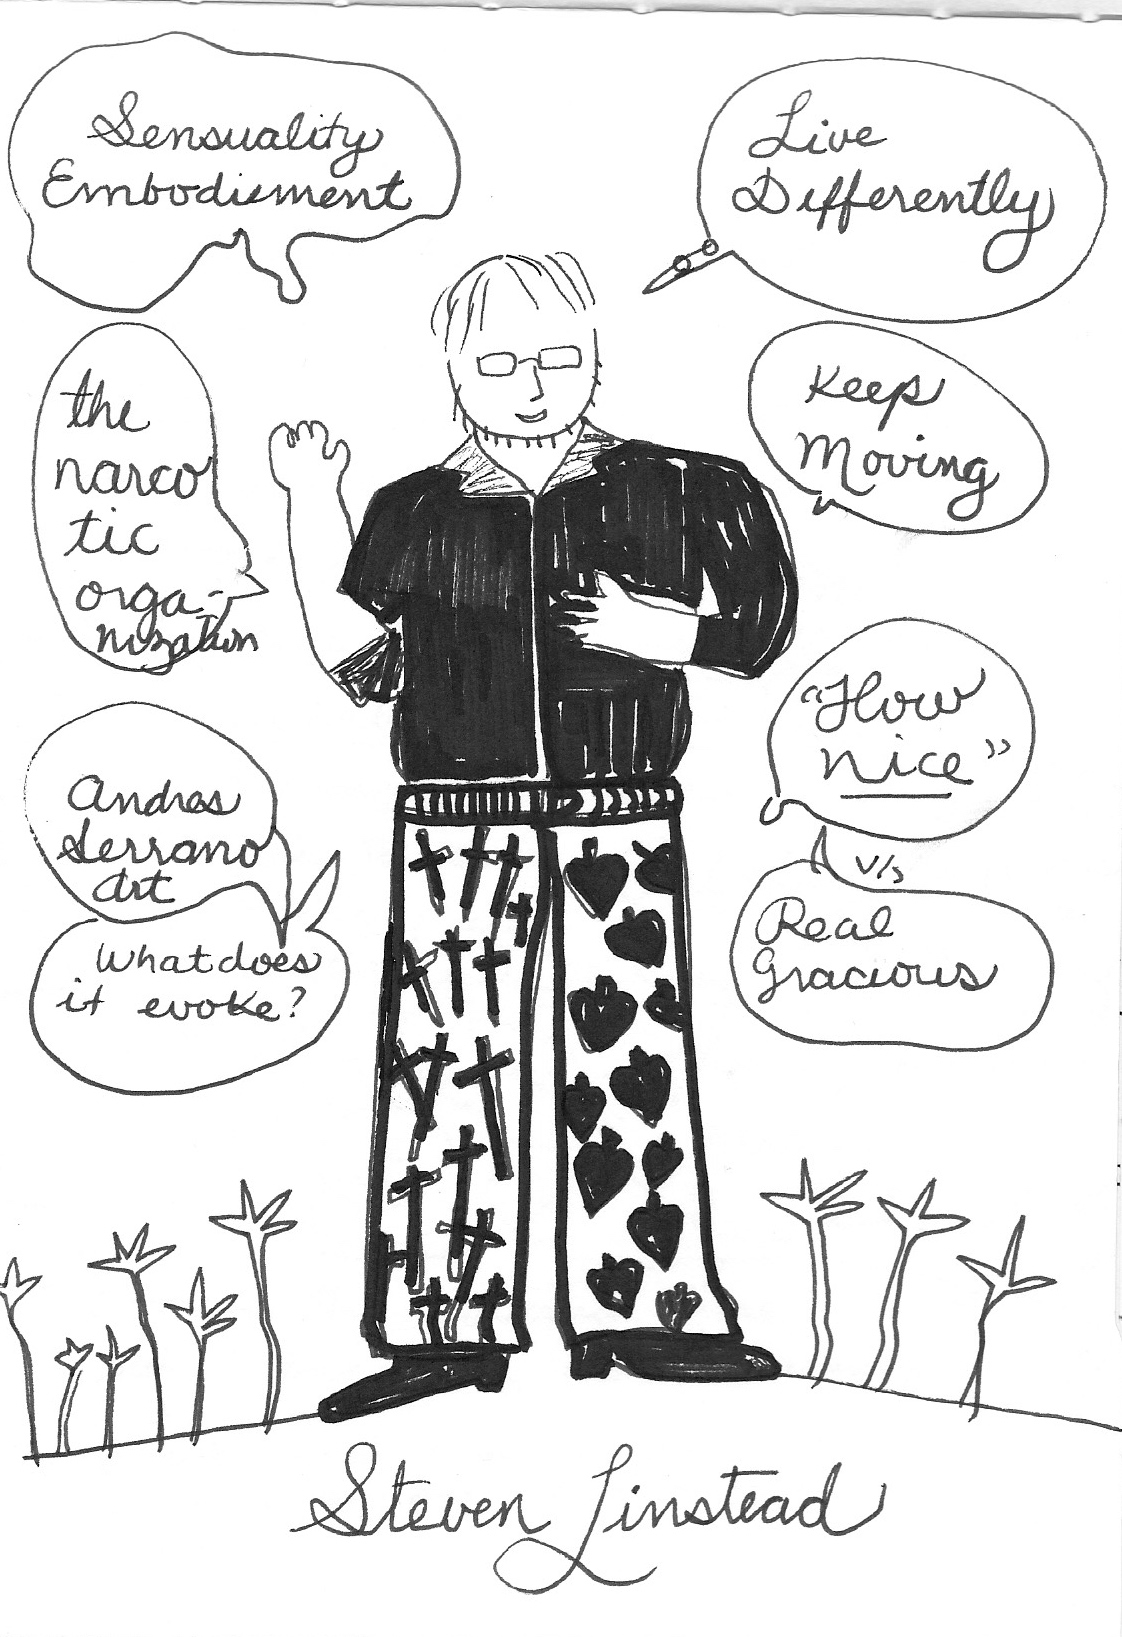 Sensuality
Embodiement
Live
Differently
the
narco
tic
orga-
nization
Keep
Moving
"How
nice"
v/s
Real
Gracious
Andres
Serrano
Art
What does
it evoke?
Steven Linstead